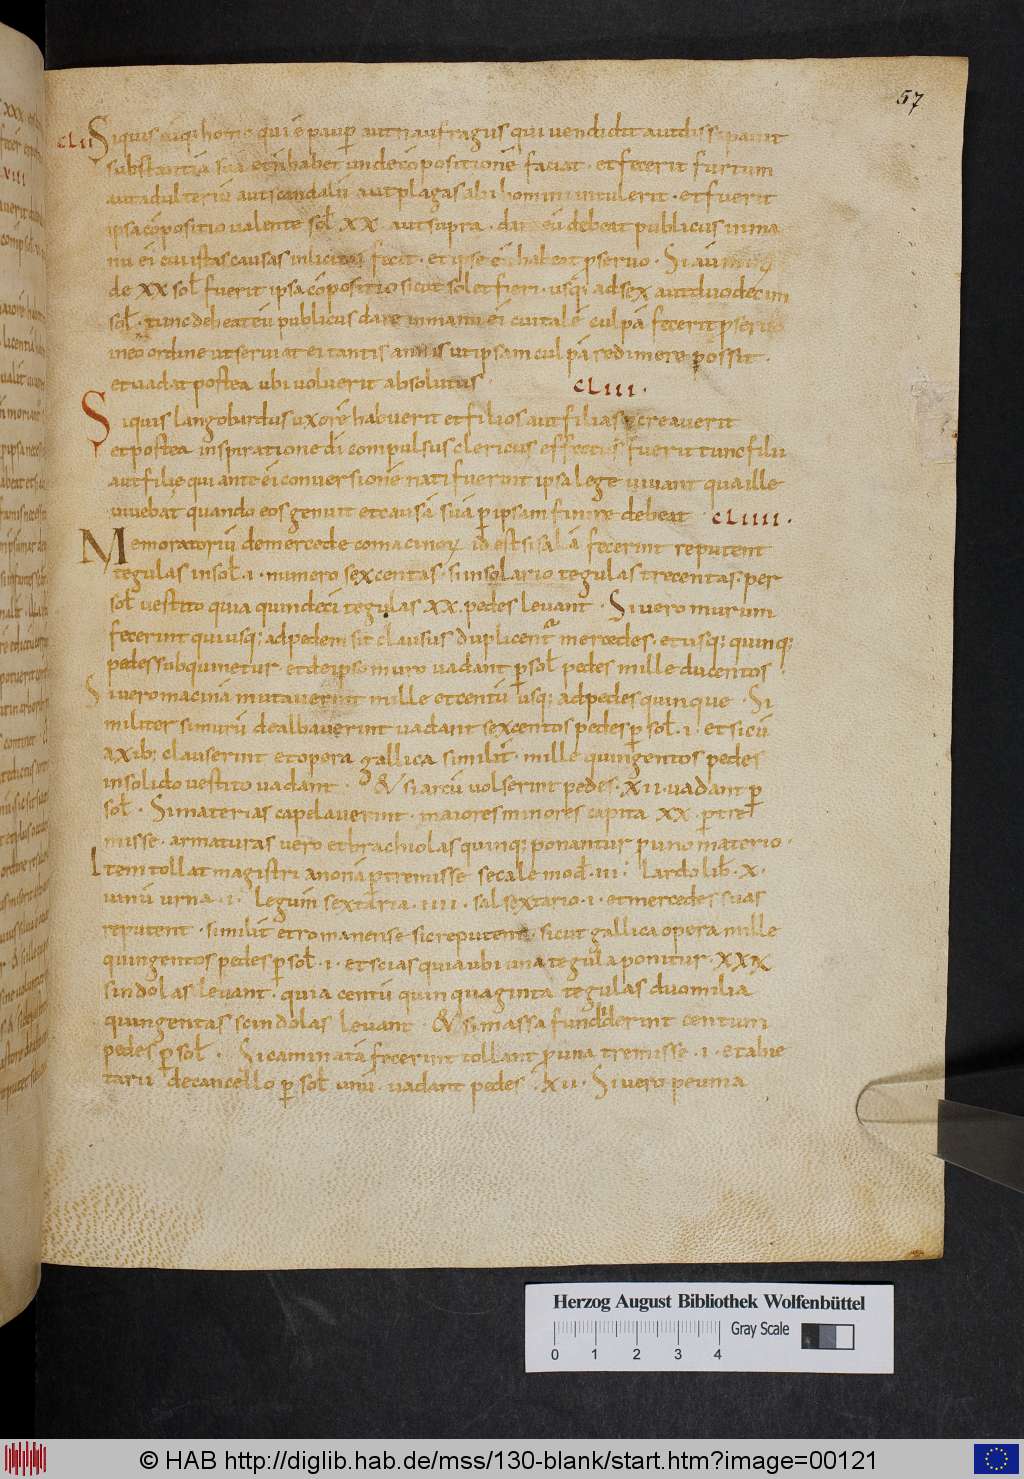 57
CLII Siquis aliqui homo qui ē paup̄ aut naufragus qui vendidit aut dissipavit
substantiā suā et n̄ habet unde cōpositionē faciat · et fecerit furtum
aut adulteriū aut scandalū aut plagas alii homini intulerit · et fuerit
ipsa cōpositio valente sol̄ XX · aut supra · dare eū debeat publicus in ma
nu ei cui istas causas inlicitas fecit · et ipse eū habeat p̄ servo · Si
de XX sol̄ fuerit ipsa cōpositio sicut solet fieri · usq; ad sex aut duodecim
sol̄ · tunc debeat eū publicus dare in manu ei cui talē culpā fecerit p̄ servo
in eo ordine ut serviat ei tantis annis ut ipsam culpā redimere possit ·
et vadat postea ubi voluerit absolutus ·
CLIII ·
Siquis langobardus uxorē habuerit et filios aut filias p̄creaverit
et postea inspiratione dī compulsus clericus effectus fuerit tunc filii
aut filie qui ante ei conversionē nati fuerint ipsa lege vivant qua ille
vivebat quando eos genuit et causā suā p̄ ipsam finire debeat CLIIII ·
Memoratoriū de mercede comacinoꝝ id est si salā fecerint reputent
tegulas in sol̄ · I · numero sexcentas · si in solario tegulas trecentas · per
sol̄ vestito quia quindeci tegulas XX · pedes levant · Si vero murum
fecerint qui usq; ad pedem sit clausus duplicentur mercedes · et usq; quinq;
pedes subquinetur · et de ipso muro vadant p̄ sol̄ pedes mille ducentos ·
Si vero macinā mutaverint mille et centū usq; ad pedes quinque · Si
militer si murū dealbaverint vadant sexcentos pedes p̄ sol̄ · I · et si cū
axib; clauserint et opera gallica similit̄ · mille quingentos pedes
in solido vestito vadant · & si arcū volserint pedes · XII · vadant p̄
sol̄ · Si materias capelaverint · maiores minores capita XX · p̄ tre
misse · armaturas vero et brachiolas quinq; ponantur p̄ uno materio ·
Item tollat magistri anonā p̄ tremisse secale mod̄ · III · lardo lib̄ · X ·
vinū urna · I · legum̄ sextaria · IIII · sal sextario · I · et mercedes suas
reputent · similit̄ et romanense sic reputent · sicut gallica opera mille
quingentos pedes p̄ sol̄ · I · et scias quia ubi una tegula ponitur · XXX
sindolas levant · quia centū quinquaginta tegulas duomilia
quingentas scindolas levant · & si massa fundderint centum
pedes p̄ sol̄ · Si caminatā fecerint tollant p̄ una tremisse · I · et abie
tarii de cancello p̄ sol̄ unū · vadant pedes · XII · Si vero peuma
Herzog August Bibliothek Wolfenbüttel
Gray Scale
0 1 2 3 4
© HAB http://diglib.hab.de/mss/130-blank/start.htm?image=00121